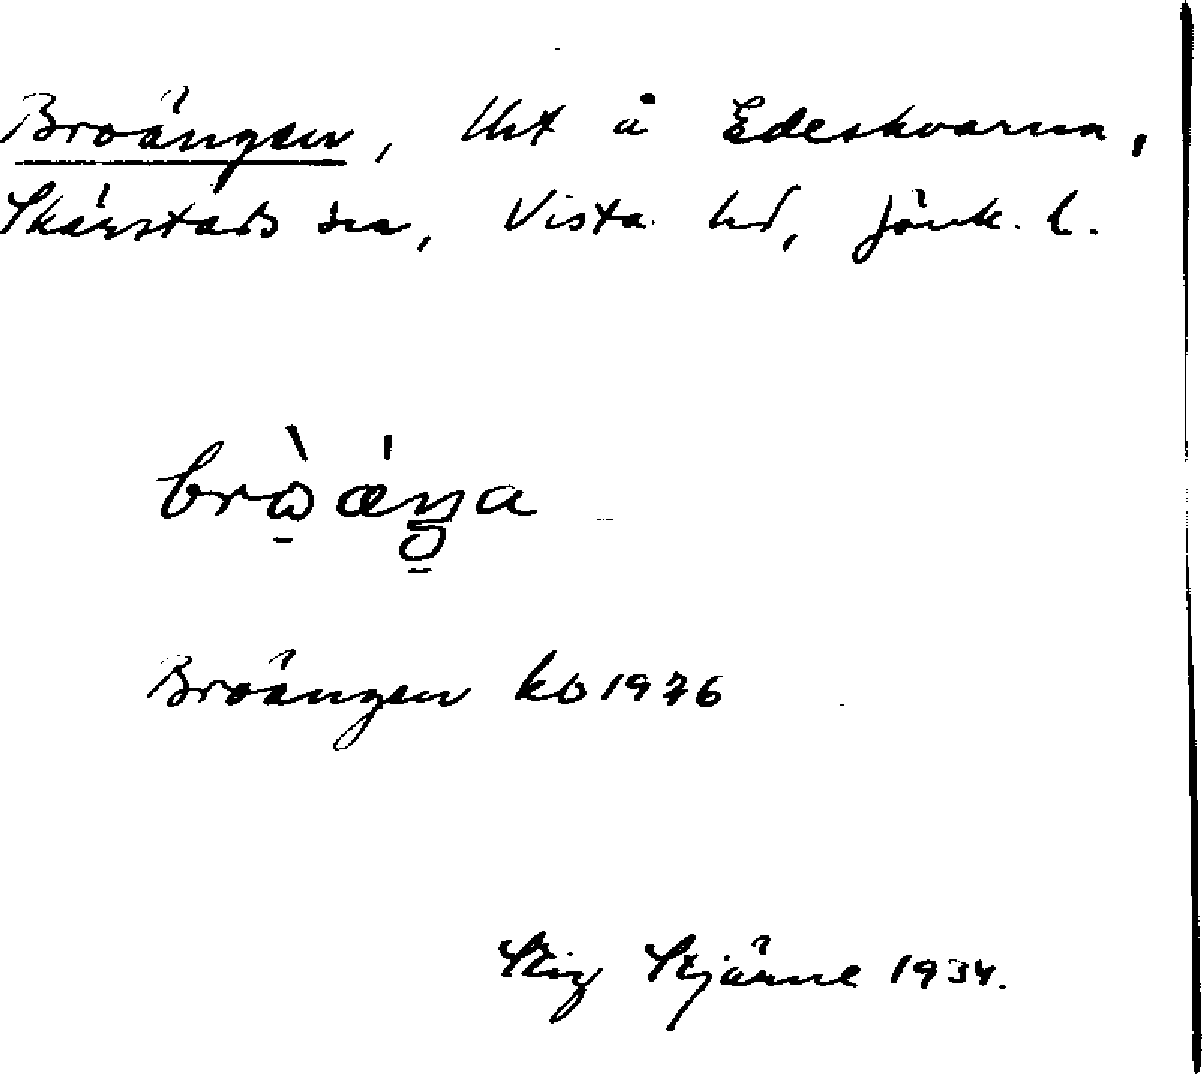 Broängen, lht å Edeskvarna,
Skärstads sn, Vista hd, Jönk. l.
brò̱ǽŋa
Broängen kb 1976
Stig Stjärne 1934.